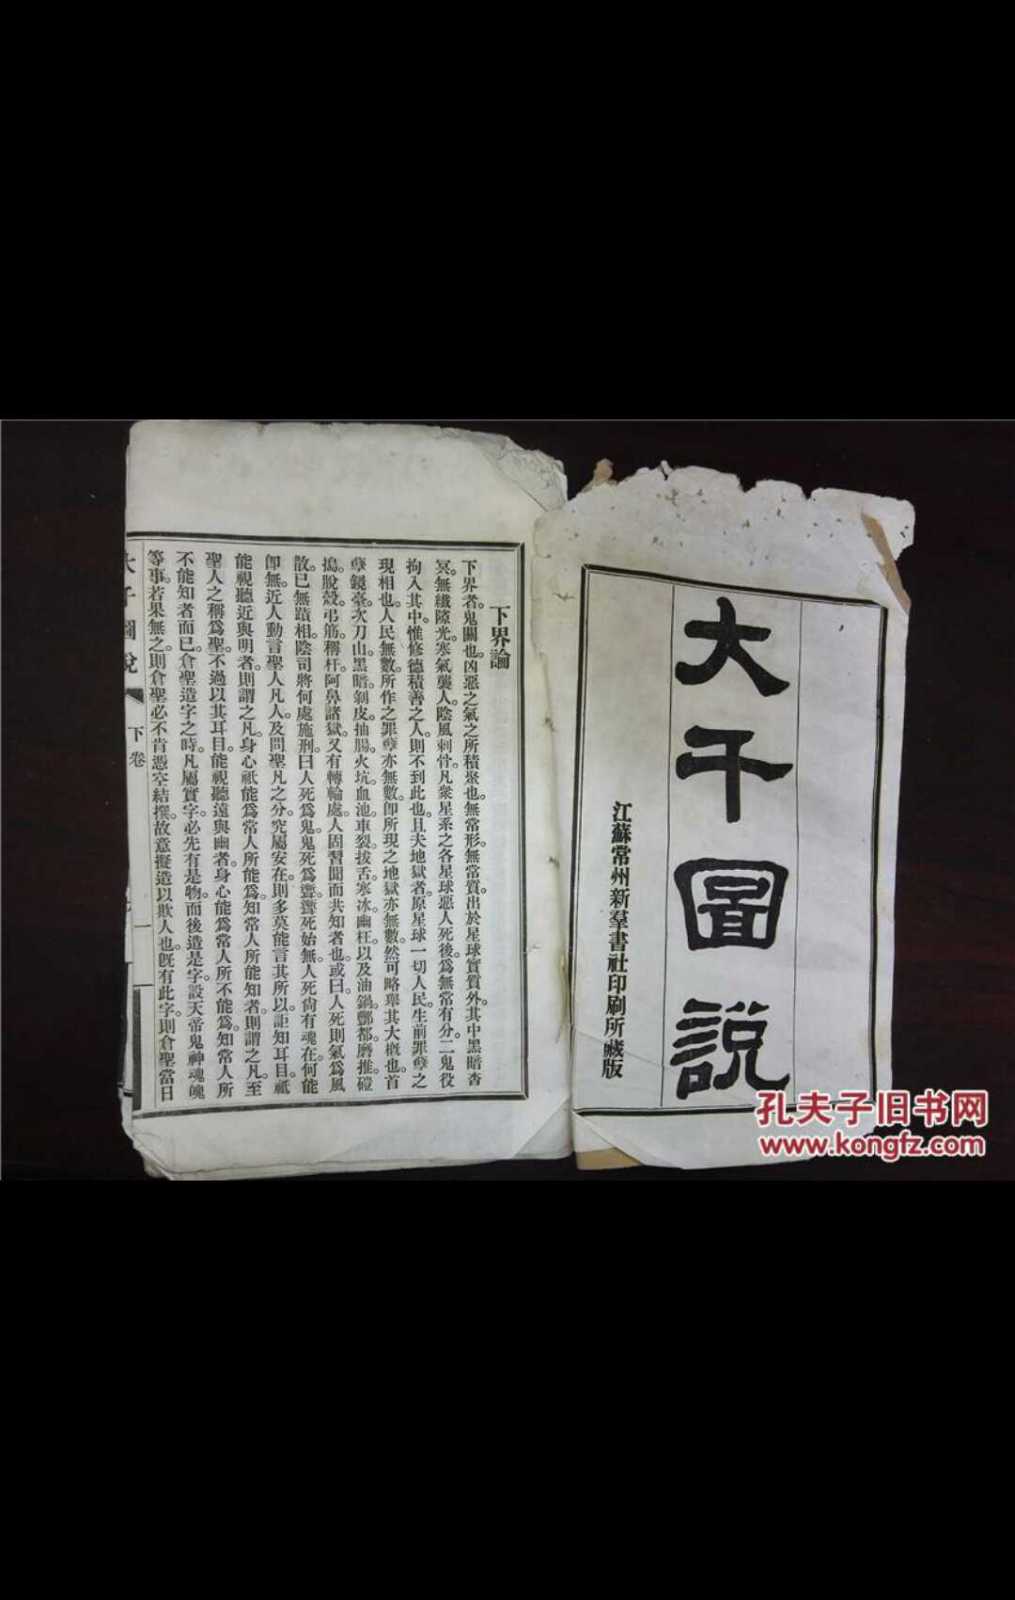 大千圖説
江蘇常州新羣書社印刷所藏版
下界論
下界者。鬼關也。凶惡之氣之所積聚也。無常形。無常質。出於星球實質外。其中黑暗杳
冥。無纖隙光。寒氣襲人。陰風刺骨。凡衆星系之各星球惡人死後。爲無常有分二鬼役
拘入其中。惟修德積善之人。則不到此也。且夫地獄者。原星球一切人民。生前罪孽之
現相也。人民無數。所作之罪孽亦無數。卽所現之地獄亦無數。然可略舉其大槪也。首
孽鏡臺。次刀山。黑暗。剝皮。抽腸。火坑。血池。車裂。拔舌。寒冰。幽枉。以及油鍋。酆都。磨推。磑
搗。脫殼。弔筋。稱杆。阿鼻諸獄。又有轉輪處。人固習聞而共知者也。或曰。人死則氣爲風
散。已無蹟相。陰司將何處施刑。曰人死爲鬼。鬼死爲聻。聻死始無。人死尙有魂在。何能
卽無。近人動言聖人凡人。及問聖凡之分。究屬安在。則多莫能言其所以。詎知耳目。祇
能視聽近與明者。則謂之凡。身心祇能爲常人所能爲。知常人所能知者。則謂之凡。至
聖人之稱爲聖。不過以其耳目。能視聽遠與幽者。身心能爲常人所不能爲。知常人所
不能知者而已。倉聖造字之時。凡屬實字。必先有是物。而後造是字。設天帝鬼神魂魄
等事。若果無之。則倉聖必不肯憑空結撰。故意擬造以欺人也。旣有此字。則倉聖當日
大千圖説
下卷
一
孔夫子旧书网
www.kongfz.com